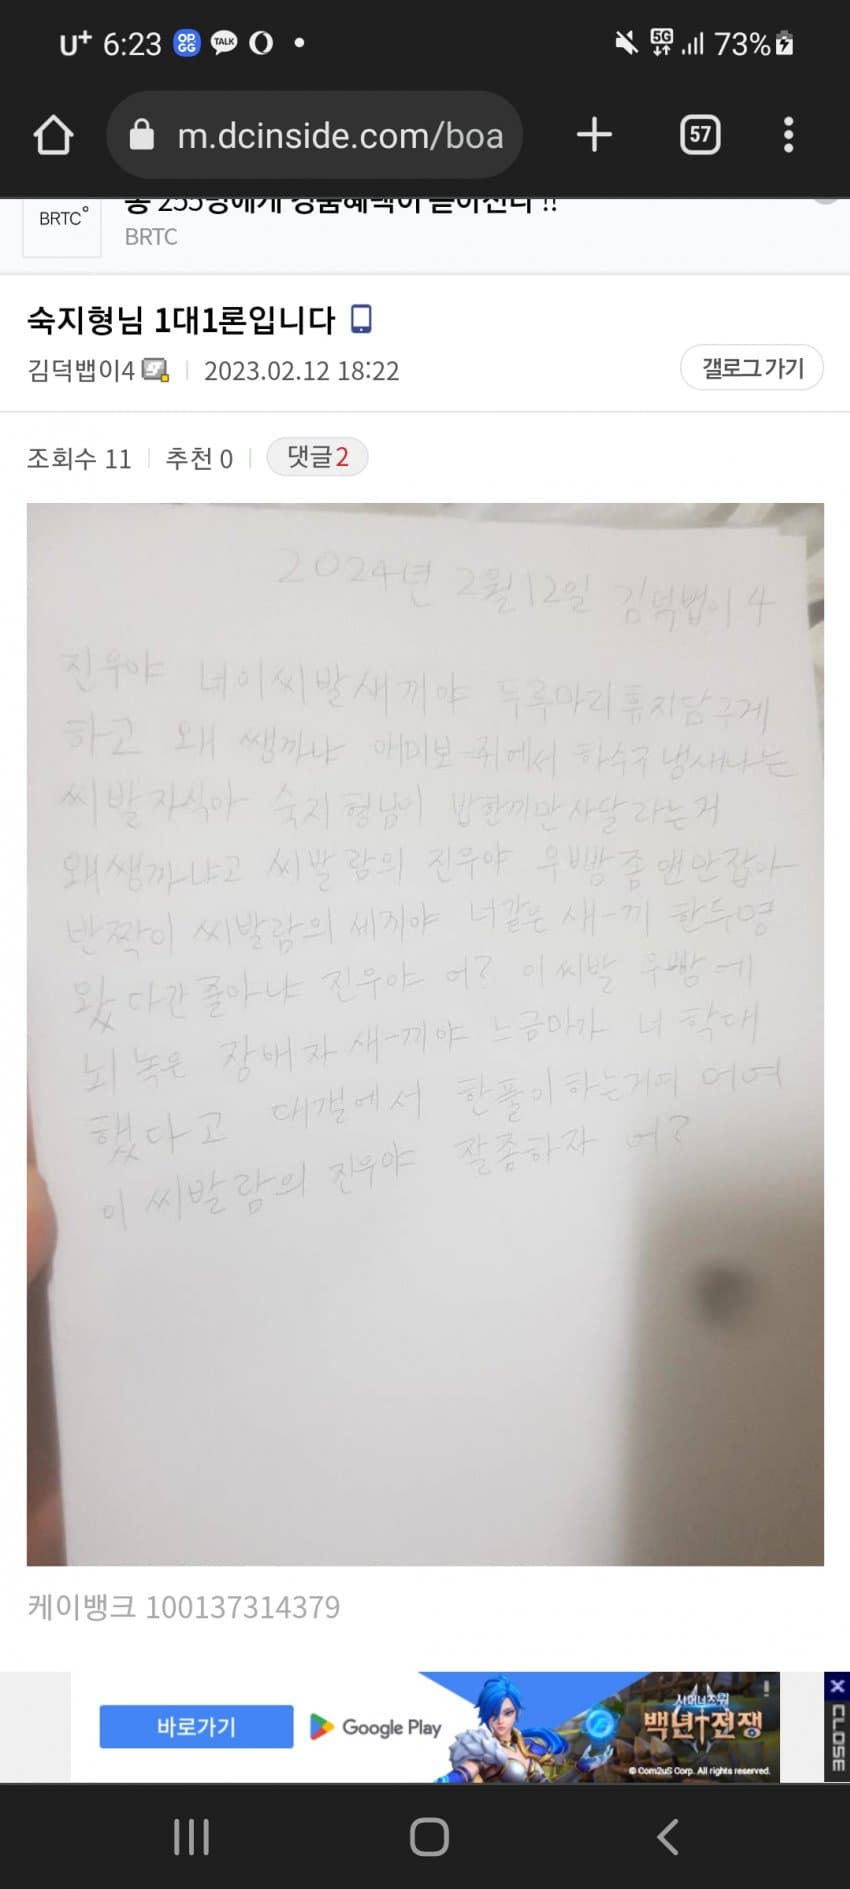 U+ 6:23 OP.GG TALK 5G 73%
m.dcinside.com/boa 57
BRTC 총 255명에게 경품혜택이 쏟아진다 !!
BRTC
숙지형님 1대1론입니다
김덕뱁이4 2023.02.12 18:22 갤로그 가기
조회수 11 추천 0 댓글 2
2024년 2월 12일 김덕법이 4
진우야 너이씨발새끼야 두루마리휴지탐구게
하고 왜 쌩까냐 애미보-쥐에서 하수구 냉새나는
씨발자식아 숙지형님이 밥한끼만사달라는거
왜쌩까냐고 씨발람의 진우야 우빵좀맨안잡아
반짝이 씨발람의 세끼야 너같은 새-끼 한두명
왔다간줄아냐 진우야 어? 이씨발 우빵에
뇌녹은 장애자새-끼야 느금마가 너 학대
했다고 대갤에서 한풀이하는거여 어여
이 씨발람의 진우야 잘좀하자 어?
케이뱅크 100137314379
바로가기 Google Play 서머너즈 워 백년전쟁
© Com2uS Corp. All rights reserved.
X CLOSE